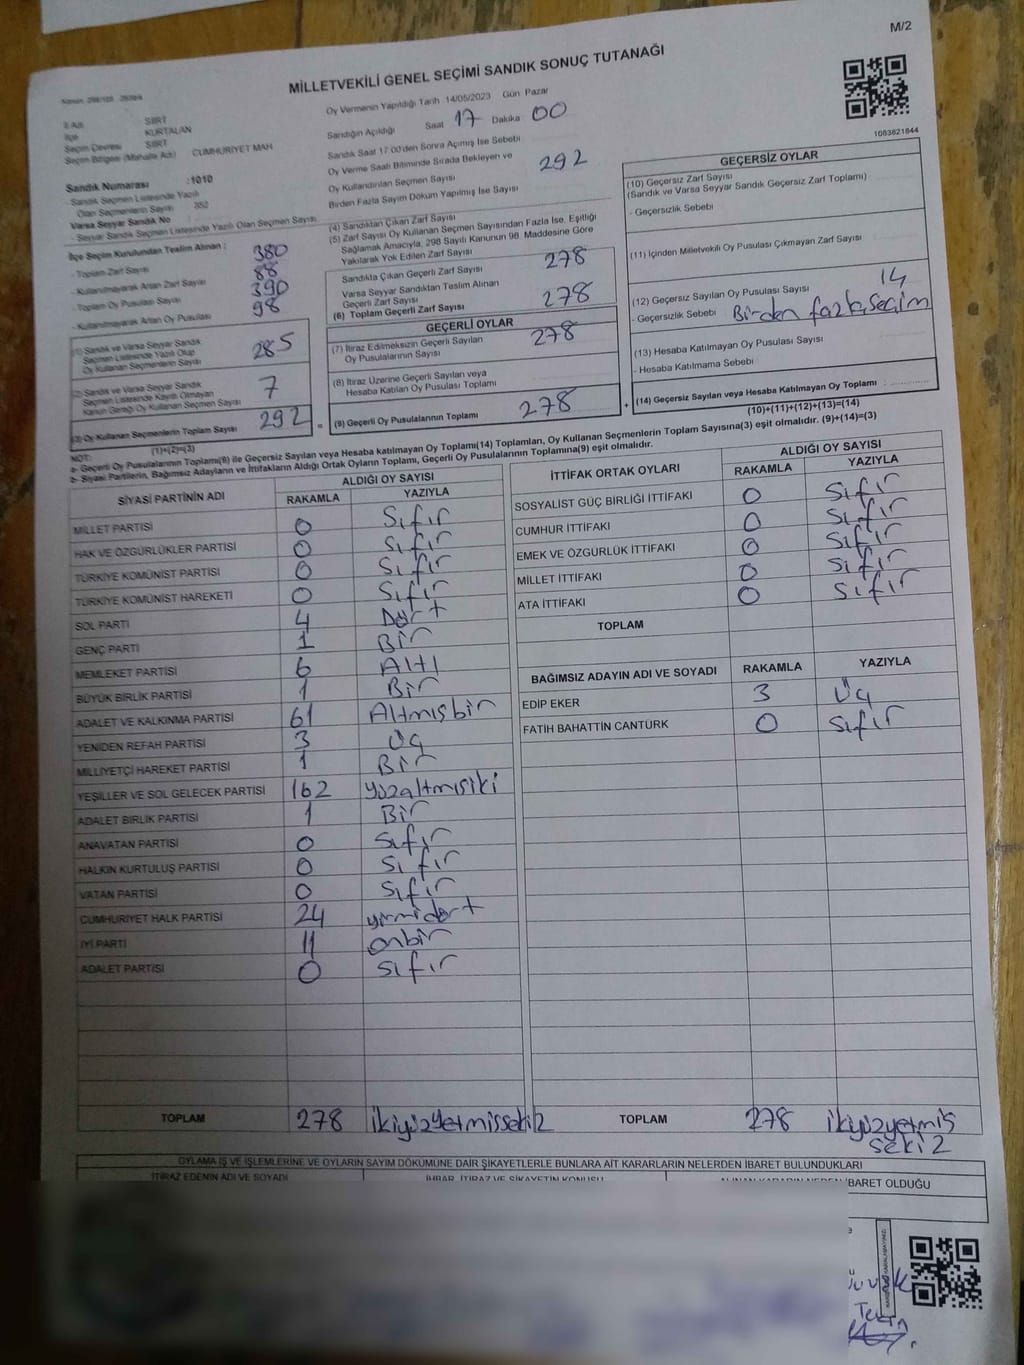 M/2
MİLLETVEKİLİ GENEL SEÇİMİ SANDIK SONUÇ TUTANAĞI
İl Adı SİİRT
İlçe KURTALAN
Seçim Çevresi SİİRT
Seçim Bölgesi (Mahalle Adı) CUMHURİYET MAH
Sandık Numarası :1010
Sandık Seçmen Listesinde Yazılı
Olan Seçmenlerin Sayısı 352
Varsa Seyyar Sandık No
- Seyyar Sandık Seçmen Listesinde Yazılı Olan Seçmen Sayısı
İlçe Seçim Kurulundan Teslim Alınan :
- Toplam Zarf Sayısı 380
- Kullanılmayarak Artan Zarf Sayısı 88
- Toplam Oy Pusulası Sayısı 390
- Kullanılmayarak Artan Oy Pusulası 98
(1) Sandık ve Varsa Seyyar Sandık
Seçmen Listesinde Yazılı Olup
Oy Kullanan Seçmenlerin Sayısı 285
(2) Sandık ve Varsa Seyyar Sandık
Seçmen Listesinde Kayıtlı Olmayan
Kanun Gereği Oy Kullanan Seçmen Sayısı 7
(3) Oy Kullanan Seçmenlerin Toplam Sayısı 292
(1)+(2)=(3)
Oy Vermenin Yapıldığı Tarih 14/05/2023 Gün Pazar
Sandığın Açıldığı Saat 17 Dakika 00
Sandık Saat 17:00'den Sonra Açımış İse Sebebi
Oy Verme Saati Bitiminde Sırada Bekleyen ve
Oy Kullandırılan Seçmen Sayısı 292
Birden Fazla Sayım Döküm Yapılmış İse Sayısı
(4) Sandıktan Çıkan Zarf Sayısı
(5) Zarf Sayısı Oy Kullanan Seçmen Sayısından Fazla İse, Eşitliği
Sağlamak Amacıyla, 298 Sayılı Kanunun 98. Maddesine Göre
Yakılarak Yok Edilen Zarf Sayısı
Sandıkta Çıkan Geçerli Zarf Sayısı 278
Varsa Seyyar Sandıktan Teslim Alınan
Geçerli Zarf Sayısı
(6) Toplam Geçerli Zarf Sayısı 278
GEÇERLİ OYLAR
(7) İtiraz Edilmeksizin Geçerli Sayılan
Oy Pusulalarının Sayısı 278
(8) İtiraz Üzerine Geçerli Sayılan veya
Hesaba Katılan Oy Pusulası Toplamı
= (9) Geçerli Oy Pusulalarının Toplamı 278
1083821844
GEÇERSİZ OYLAR
(10) Geçersiz Zarf Sayısı
(Sandık ve Varsa Seyyar Sandık Geçersiz Zarf Toplamı)
- Geçersizlik Sebebi
(11) İçinden Milletvekili Oy Pusulası Çıkmayan Zarf Sayısı
(12) Geçersiz Sayılan Oy Pusulası Sayısı 14
- Geçersizlik Sebebi Birden fazla seçim
(13) Hesaba Katılmayan Oy Pusulası Sayısı
- Hesaba Katılmama Sebebi
+ (14) Geçersiz Sayılan veya Hesaba Katılmayan Oy Toplamı :
(10)+(11)+(12)+(13)=(14)
NOT:
a- Geçerli Oy Pusulalarının Toplamı(9) ile Geçersiz Sayılan veya Hesaba Katılmayan Oy Toplamı(14) Toplamları, Oy Kullanan Seçmenlerin Toplam Sayısına(3) eşit olmalıdır. (9)+(14)=(3)
b- Siyasi Partilerin, Bağımsız Adayların ve İttifakların Aldığı Ortak Oyların Toplamı, Geçerli Oy Pusulalarının Toplamına(9) eşit olmalıdır.
SİYASİ PARTİNİN ADI ALDIĞI OY SAYISI
RAKAMLA YAZIYLA
MİLLET PARTİSİ 0 Sıfır
HAK VE ÖZGÜRLÜKLER PARTİSİ 0 Sıfır
TÜRKİYE KOMÜNİST PARTİSİ 0 Sıfır
TÜRKİYE KOMÜNİST HAREKETİ 0 Sıfır
SOL PARTİ 4 Dört
GENÇ PARTİ 1 Bir
MEMLEKET PARTİSİ 6 Altı
BÜYÜK BİRLİK PARTİSİ 1 Bir
ADALET VE KALKINMA PARTİSİ 61 Altmışbir
YENİDEN REFAH PARTİSİ 3 Üç
MİLLİYETÇİ HAREKET PARTİSİ 1 Bir
YEŞİLLER VE SOL GELECEK PARTİSİ 162 yüzaltmışiki
ADALET BİRLİK PARTİSİ 1 Bir
ANAVATAN PARTİSİ 0 Sıfır
HALKIN KURTULUŞ PARTİSİ 0 Sıfır
VATAN PARTİSİ 0 Sıfır
CUMHURİYET HALK PARTİSİ 24 yirmidört
İYİ PARTİ 11 onbir
ADALET PARTİSİ 0 sıfır
TOPLAM 278 ikiyüzyetmişsekiz
İTTİFAK ORTAK OYLARI ALDIĞI OY SAYISI
RAKAMLA YAZIYLA
SOSYALİST GÜÇ BİRLİĞİ İTTİFAKI 0 Sıfır
CUMHUR İTTİFAKI 0 Sıfır
EMEK VE ÖZGÜRLÜK İTTİFAKI 0 Sıfır
MİLLET İTTİFAKI 0 Sıfır
ATA İTTİFAKI 0 Sıfır
TOPLAM
BAĞIMSIZ ADAYIN ADI VE SOYADI RAKAMLA YAZIYLA
EDİP EKER 3 Üç
FATİH BAHATTİN CANTÜRK 0 Sıfır
TOPLAM 278 ikiyüzyetmiş
sekiz
OYLAMA İŞ VE İŞLEMLERİNE VE OYLARIN SAYIM DÖKÜMÜNE DAİR ŞİKAYETLERLE BUNLARA AİT KARARLARIN NELERDEN İBARET BULUNDUKLARI
İTİRAZ EDENİN ADI VE SOYADI İHBAR, İTİRAZ VE ŞİKAYETİN KONUSU ALINAN KARARIN NEDEN İBARET OLDUĞU